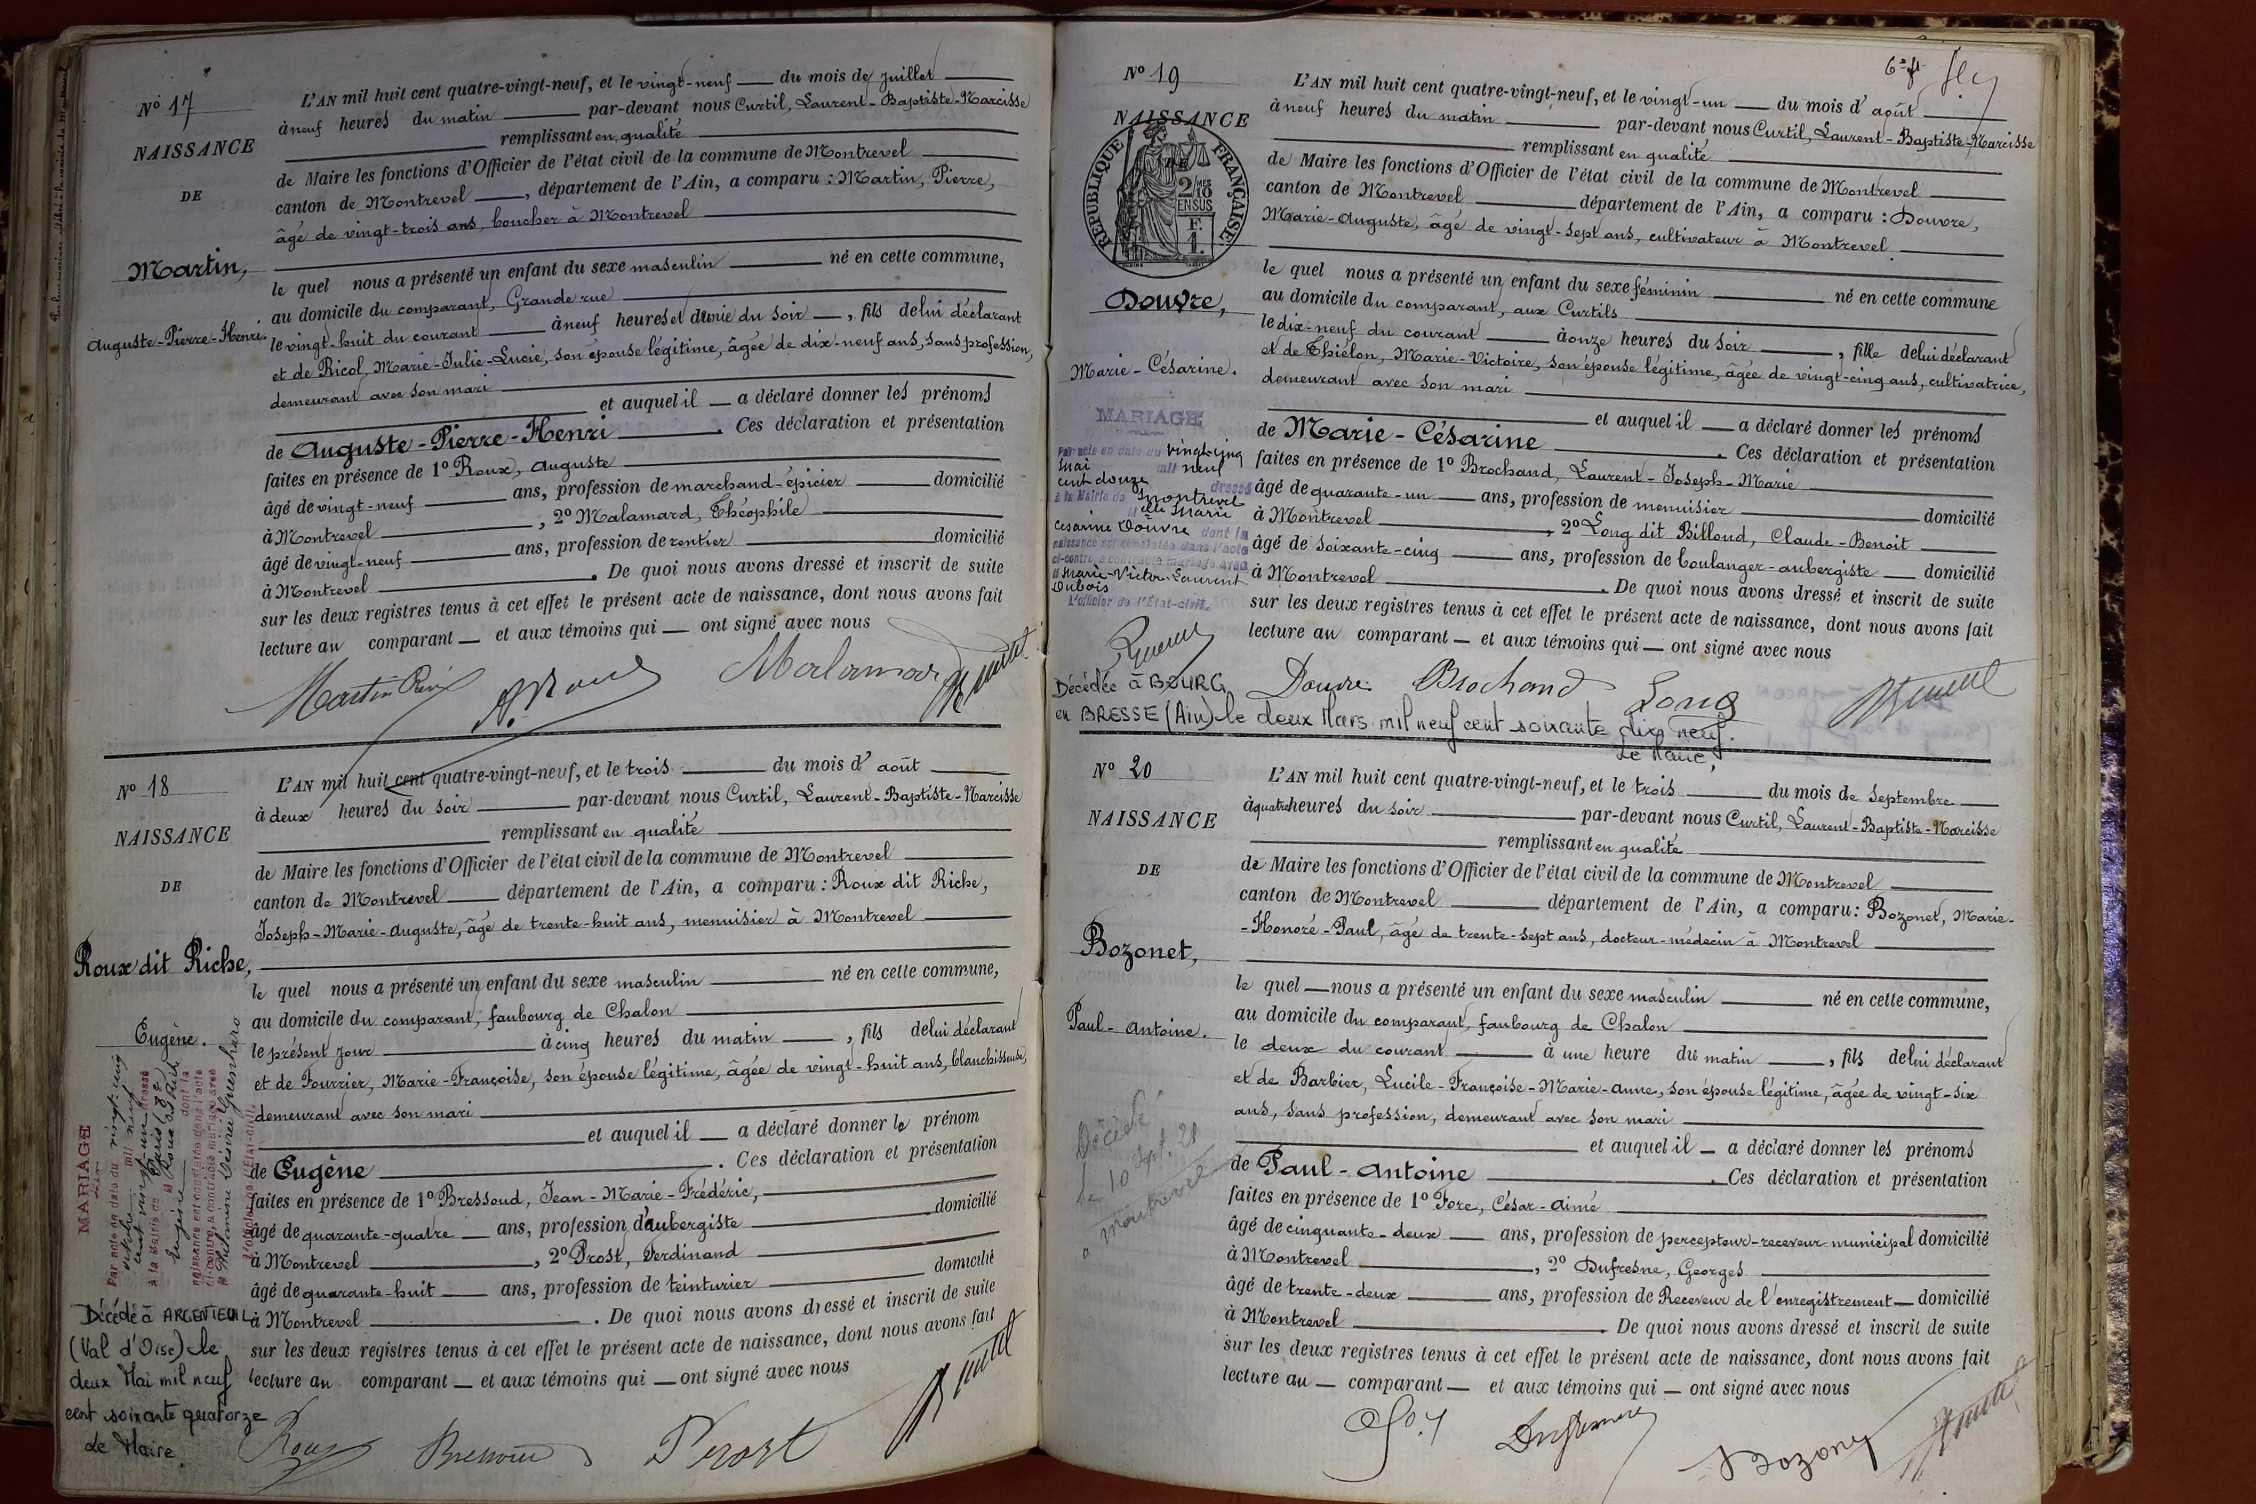 N° 17
NAISSANCE
DE
Martin,
Auguste-Pierre-Henri.
L'AN mil huit cent quatre-vingt-neuf, et le vingt-neuf du mois de juillet
à neuf heures du matin par-devant nous Curtil, Laurent-Baptiste-Narcisse
remplissant en qualité
de Maire les fonctions d'Officier de l'état civil de la commune de Montrevel
canton de Montrevel, département de l'Ain, a comparu : Martin, Pierre,
âgé de vingt-trois ans, boucher à Montrevel
le quel nous a présenté un enfant du sexe masculin né en cette commune,
au domicile du comparant, Grande rue
le vingt-huit du courant à neuf heures et demie du soir, fils de lui déclarant
et de Ricol, Marie-Julie-Lucie, son épouse légitime, âgée de dix-neuf ans, sans profession,
demeurant avec son mari
et auquel il a déclaré donner les prénoms
de Auguste-Pierre-Henri. Ces déclaration et présentation
faites en présence de 1° Roux, Auguste
âgé de vingt-neuf ans, profession de marchand-épicier domicilié
à Montrevel, 2° Malamard, Théophile
âgé de vingt-neuf ans, profession de rentier domicilié
à Montrevel. De quoi nous avons dressé et inscrit de suite
sur les deux registres tenus à cet effet le présent acte de naissance, dont nous avons fait
lecture au comparant et aux témoins qui ont signé avec nous
Martin A. Roux Malamard
N° 18
NAISSANCE
DE
Roux dit Riche,
Eugène.
MARIAGE
Par acte en date du vingt-cinq
octobre mil neuf
cent vingt-un dressé
à la Mairie de Paris (8e)
M Roux dit Riche
Eugène dont la
naissance est constatée dans l'acte
ci-contre, a contracté mariage avec
M Philomène Désirée
L'officier de l'État-civil,
Décédé à ARGENTEUIL
(Val d'Oise) le
deux Mai mil neuf
cent soixante quatorze
Le Maire.
L'AN mil huit cent quatre-vingt-neuf, et le trois du mois d'août
à deux heures du soir par-devant nous Curtil, Laurent-Baptiste-Narcisse
remplissant en qualité
de Maire les fonctions d'Officier de l'état civil de la commune de Montrevel
canton de Montrevel département de l'Ain, a comparu : Roux dit Riche,
Joseph-Marie-Auguste, âgé de trente-huit ans, menuisier à Montrevel
le quel nous a présenté un enfant du sexe masculin né en cette commune,
au domicile du comparant, faubourg de Chalon
le présent jour à cinq heures du matin, fils de lui déclarant
et de Fourrier, Marie-Françoise, son épouse légitime, âgée de vingt-huit ans, blanchisseuse,
demeurant avec son mari
et auquel il a déclaré donner le prénom
de Eugène. Ces déclaration et présentation
faites en présence de 1° Bressoud, Jean-Marie-Frédéric,
âgé de quarante-quatre ans, profession d'aubergiste domicilié
à Montrevel, 2° Prost, Ferdinand
âgé de quarante-huit ans, profession de teinturier domicilié
à Montrevel. De quoi nous avons dressé et inscrit de suite
sur les deux registres tenus à cet effet le présent acte de naissance, dont nous avons fait
lecture au comparant et aux témoins qui ont signé avec nous
Roux Bressoud Prost
N° 19
NAISSANCE
DE
RÉPUBLIQUE FRANÇAISE
2/10MES
EN SUS
F.
1.
Douvre,
Marie-Césarine.
MARIAGE
Par acte en date du vingt-cinq
mai mil neuf
cent douze dressé
à la Mairie de Montrevel
Melle Marie
Césarine Douvre dont la
naissance est constatée dans l'acte
ci-contre, a contracté mariage avec
M Marie-Victor-Laurent
Dubois
L'officier de l'État-civil.
Décédée à BOURG
en BRESSE (Ain) le deux Mars mil neuf cent soixante dix neuf.
Le Maire,
L'AN mil huit cent quatre-vingt-neuf, et le vingt-un du mois d'août
à neuf heures du matin par-devant nous Curtil, Laurent-Baptiste-Narcisse
remplissant en qualité
de Maire les fonctions d'Officier de l'état civil de la commune de Montrevel
canton de Montrevel département de l'Ain, a comparu : Douvre,
Marie-Auguste, âgé de vingt-sept ans, cultivateur à Montrevel
le quel nous a présenté un enfant du sexe féminin né en cette commune
au domicile du comparant, aux Curtils
le dix-neuf du courant à onze heures du soir, fille de lui déclarant
et de Thiélon, Marie-Victoire, son épouse légitime, âgée de vingt-cinq ans, cultivatrice,
demeurant avec son mari
et auquel il a déclaré donner les prénoms
de Marie-Césarine. Ces déclaration et présentation
faites en présence de 1° Brochand, Laurent-Joseph-Marie
âgé de quarante-un ans, profession de menuisier domicilié
à Montrevel, 2° Long dit Billoud, Claude-Benoit
âgé de soixante-cinq ans, profession de boulanger-aubergiste domicilié
à Montrevel. De quoi nous avons dressé et inscrit de suite
sur les deux registres tenus à cet effet le présent acte de naissance, dont nous avons fait
lecture au comparant et aux témoins qui ont signé avec nous
Douvre Brochand Long
N° 20
NAISSANCE
DE
Bozonet,
Paul-Antoine.
Décédé
le 10 Sept. 21
à Montrevel
L'AN mil huit cent quatre-vingt-neuf, et le trois du mois de septembre
à quatre heures du soir par-devant nous Curtil, Laurent-Baptiste-Narcisse
remplissant en qualité
de Maire les fonctions d'Officier de l'état civil de la commune de Montrevel
canton de Montrevel département de l'Ain, a comparu : Bozonet, Marie-
-Honoré-Paul, âgé de trente-sept ans, docteur-médecin à Montrevel
le quel nous a présenté un enfant du sexe masculin né en cette commune,
au domicile du comparant, faubourg de Chalon
le deux du courant à une heure du matin, fils de lui déclarant
et de Barbier, Lucile-Françoise-Marie-Anne, son épouse légitime, âgée de vingt-six
ans, sans profession, demeurant avec son mari
et auquel il a déclaré donner les prénoms
de Paul-Antoine. Ces déclaration et présentation
faites en présence de 1° Fore, César-Aimé
âgé de cinquante-deux ans, profession de percepteur-receveur municipal domicilié
à Montrevel, 2° Dufresne, Georges
âgé de trente-deux ans, profession de Receveur de l'enregistrement domicilié
à Montrevel. De quoi nous avons dressé et inscrit de suite
sur les deux registres tenus à cet effet le présent acte de naissance, dont nous avons fait
lecture au comparant et aux témoins qui ont signé avec nous
Dufresne Bozonet